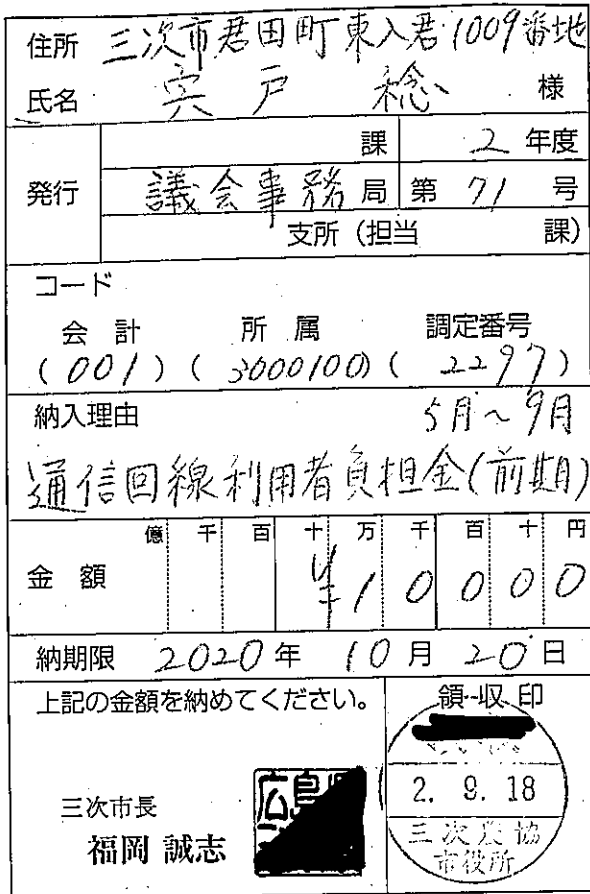 住所 三次市君田町東入君1009番地
氏名 宍戸 稔 様
課 2年度
発行 議会事務局 第 71 号
支所(担当 課)
コード
会計 所属 調定番号
(001)(3000100)(2297)
納入理由 5月~9月
通信回線利用者負担金(前期)
億 千 百 十 万 千 百 十 円
金額 ¥10000
納期限 2020年 10月 20日
上記の金額を納めてください。
領収印
2. 9. 18
三次農協
市役所
三次市長
福岡 誠志
広島